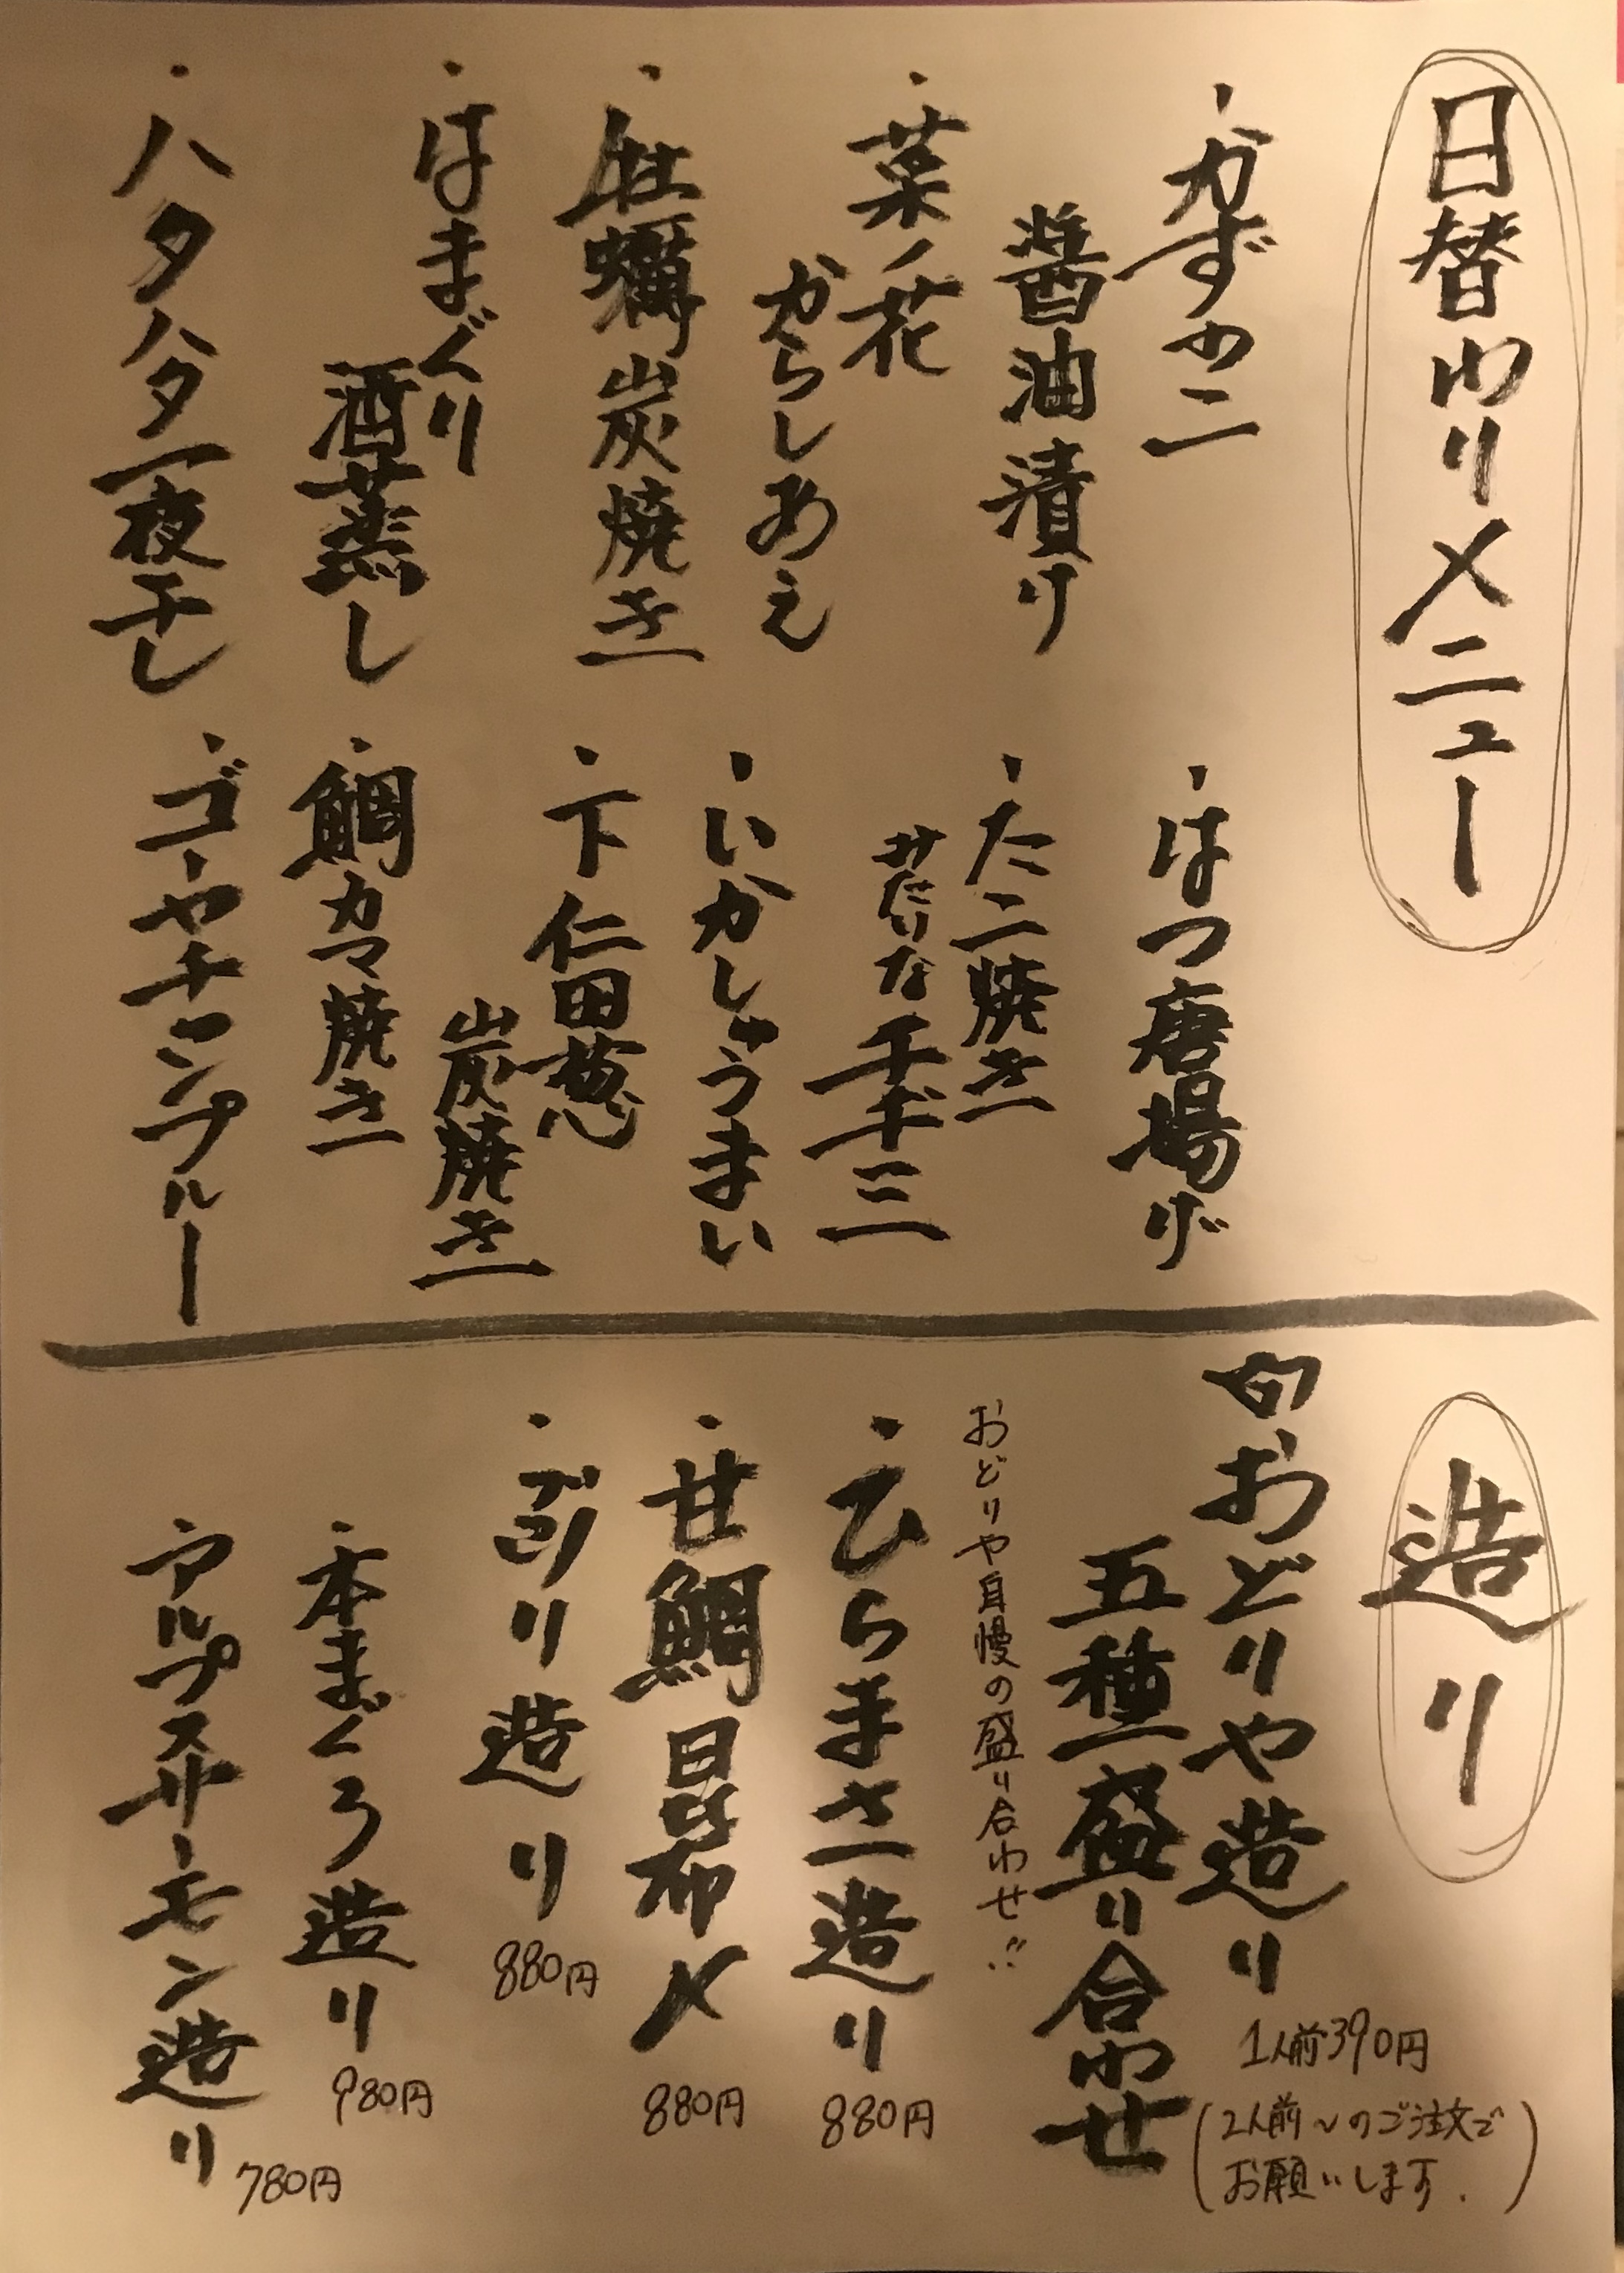 日替わりメニュー
・かずのこ
醤油漬け
・菜ノ花
からしあえ
・牡蠣炭焼き
・はまぐり
酒蒸し
・ハタハタ一夜干し
・はつ唐揚げ
・たこ焼き
チヂミ
・いかしゅうまい
・下仁田葱
炭焼き
・鯛カマ焼き
・ゴーヤチャンプルー
造り
旬おどりや造り
五種盛り合わせ
1人前390円
(2人前〜のご注文で
お願いします.)
おどりや自慢の盛り合わせ!!
・ひらまさ造り
880円
・甘鯛昆布〆
880円
・ぶり造り
880円
・本まぐろ造り
980円
・アルプスサーモン造り
780円